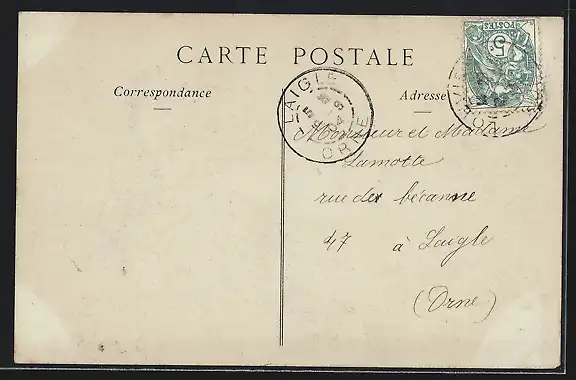 CARTE POSTALE
Correspondance
Adresse
LAIGLE
ORNE
5c
POSTES
Monsieur et Madame
Lamotte
rue des bécanne
47 à Laigle
(Orne)